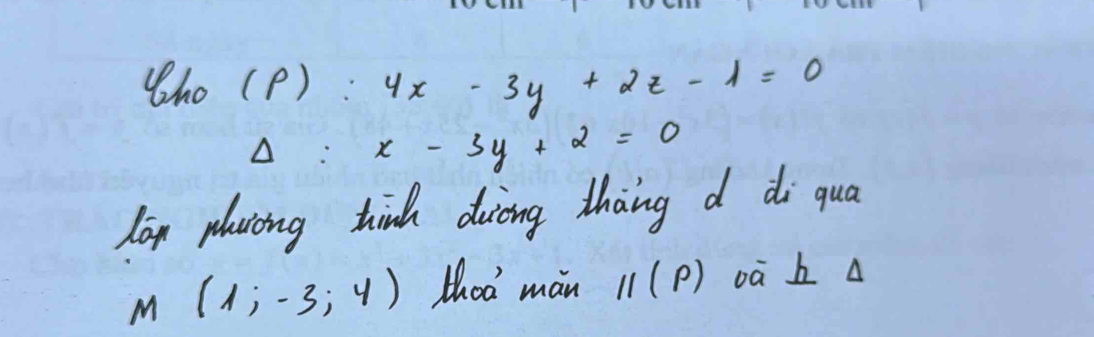 10 cm 10 cm 10 cm
Cho (P) : 4x - 3y + 2z - 1 = 0
Δ : x - 3y + 2 = 0
lập phương trình đường thẳng d đi qua
M (1; -3; 4) thoả mãn // (P) và ⊥ Δ